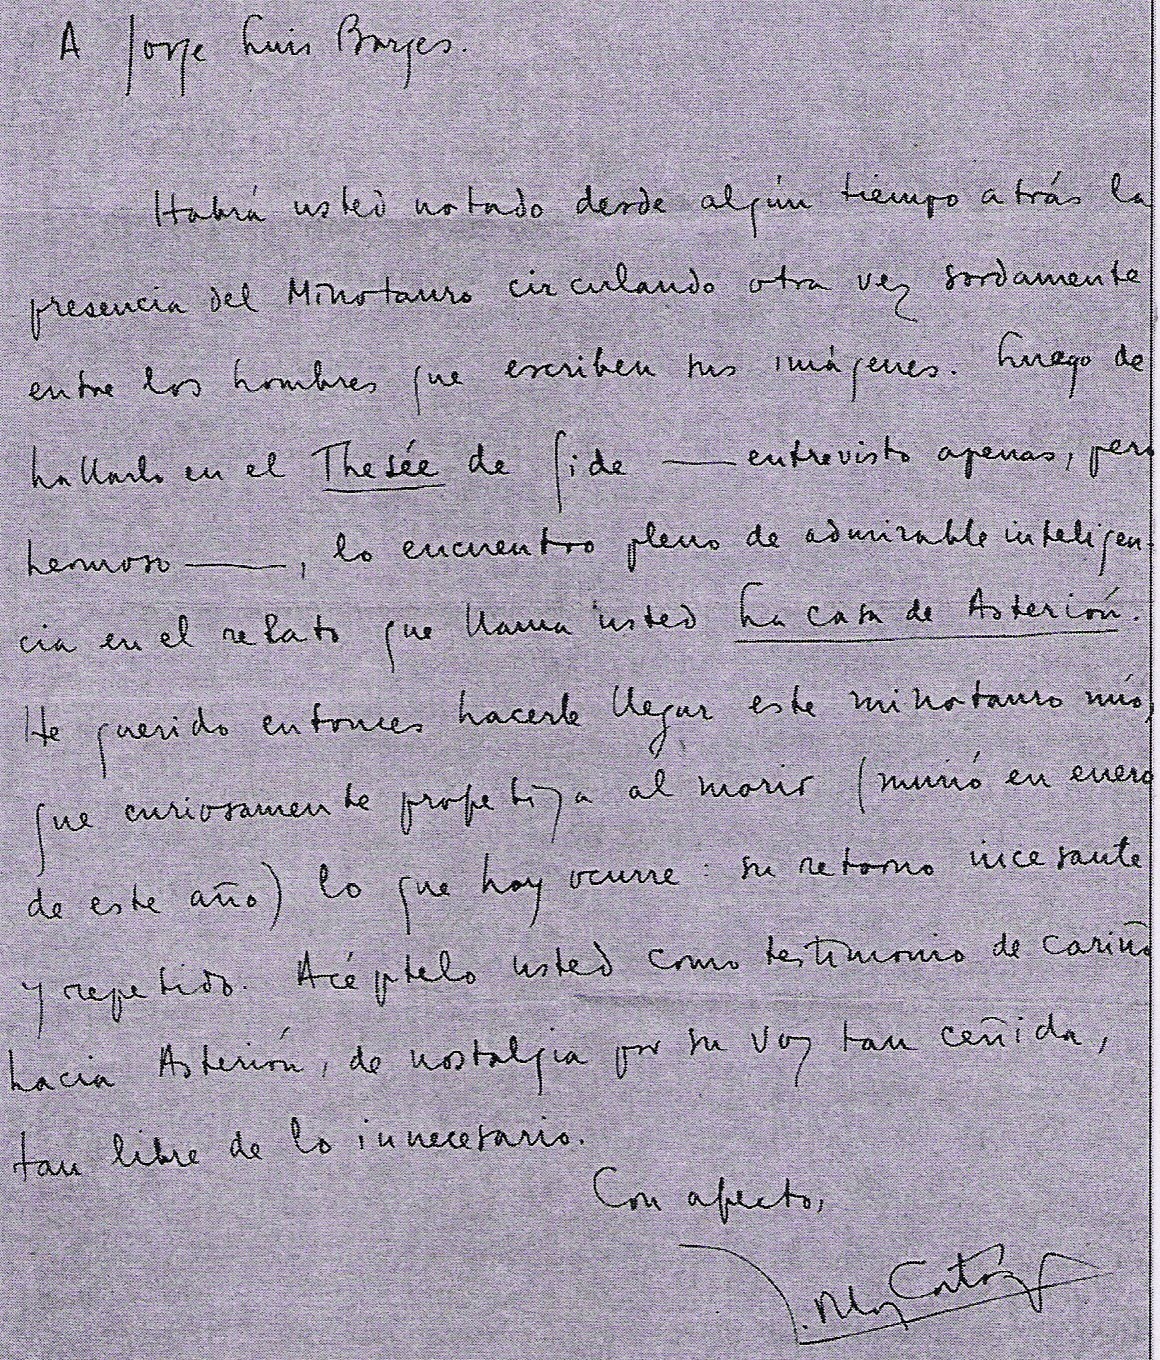 A Jorge Luis Borges.
Habrá usted notado desde algún tiempo atrás la
presencia del Minotauro circulando otra vez sordamente
entre los hombres que escriben sus imágenes. Luego de
hallarlo en el Thesée de Gide — entrevisto apenas, pero
hermoso —, lo encuentro pleno de admirable inteligen-
cia en el relato que llama usted La casa de Asterión.
He querido entonces hacerle llegar este minotauro mío,
que curiosamente profetiza al morir (murió en enero
de este año) lo que hoy ocurre: su retorno incesante
y repetido. Acéptelo usted como testimonio de cariño
hacia Asterión, de nostalgia por su voz tan ceñida,
tan libre de lo innecesario.
Con afecto,
Julio Cortázar